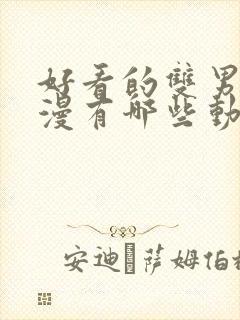 好看的雙男
漫有哪些動
安迪 萨姆伯